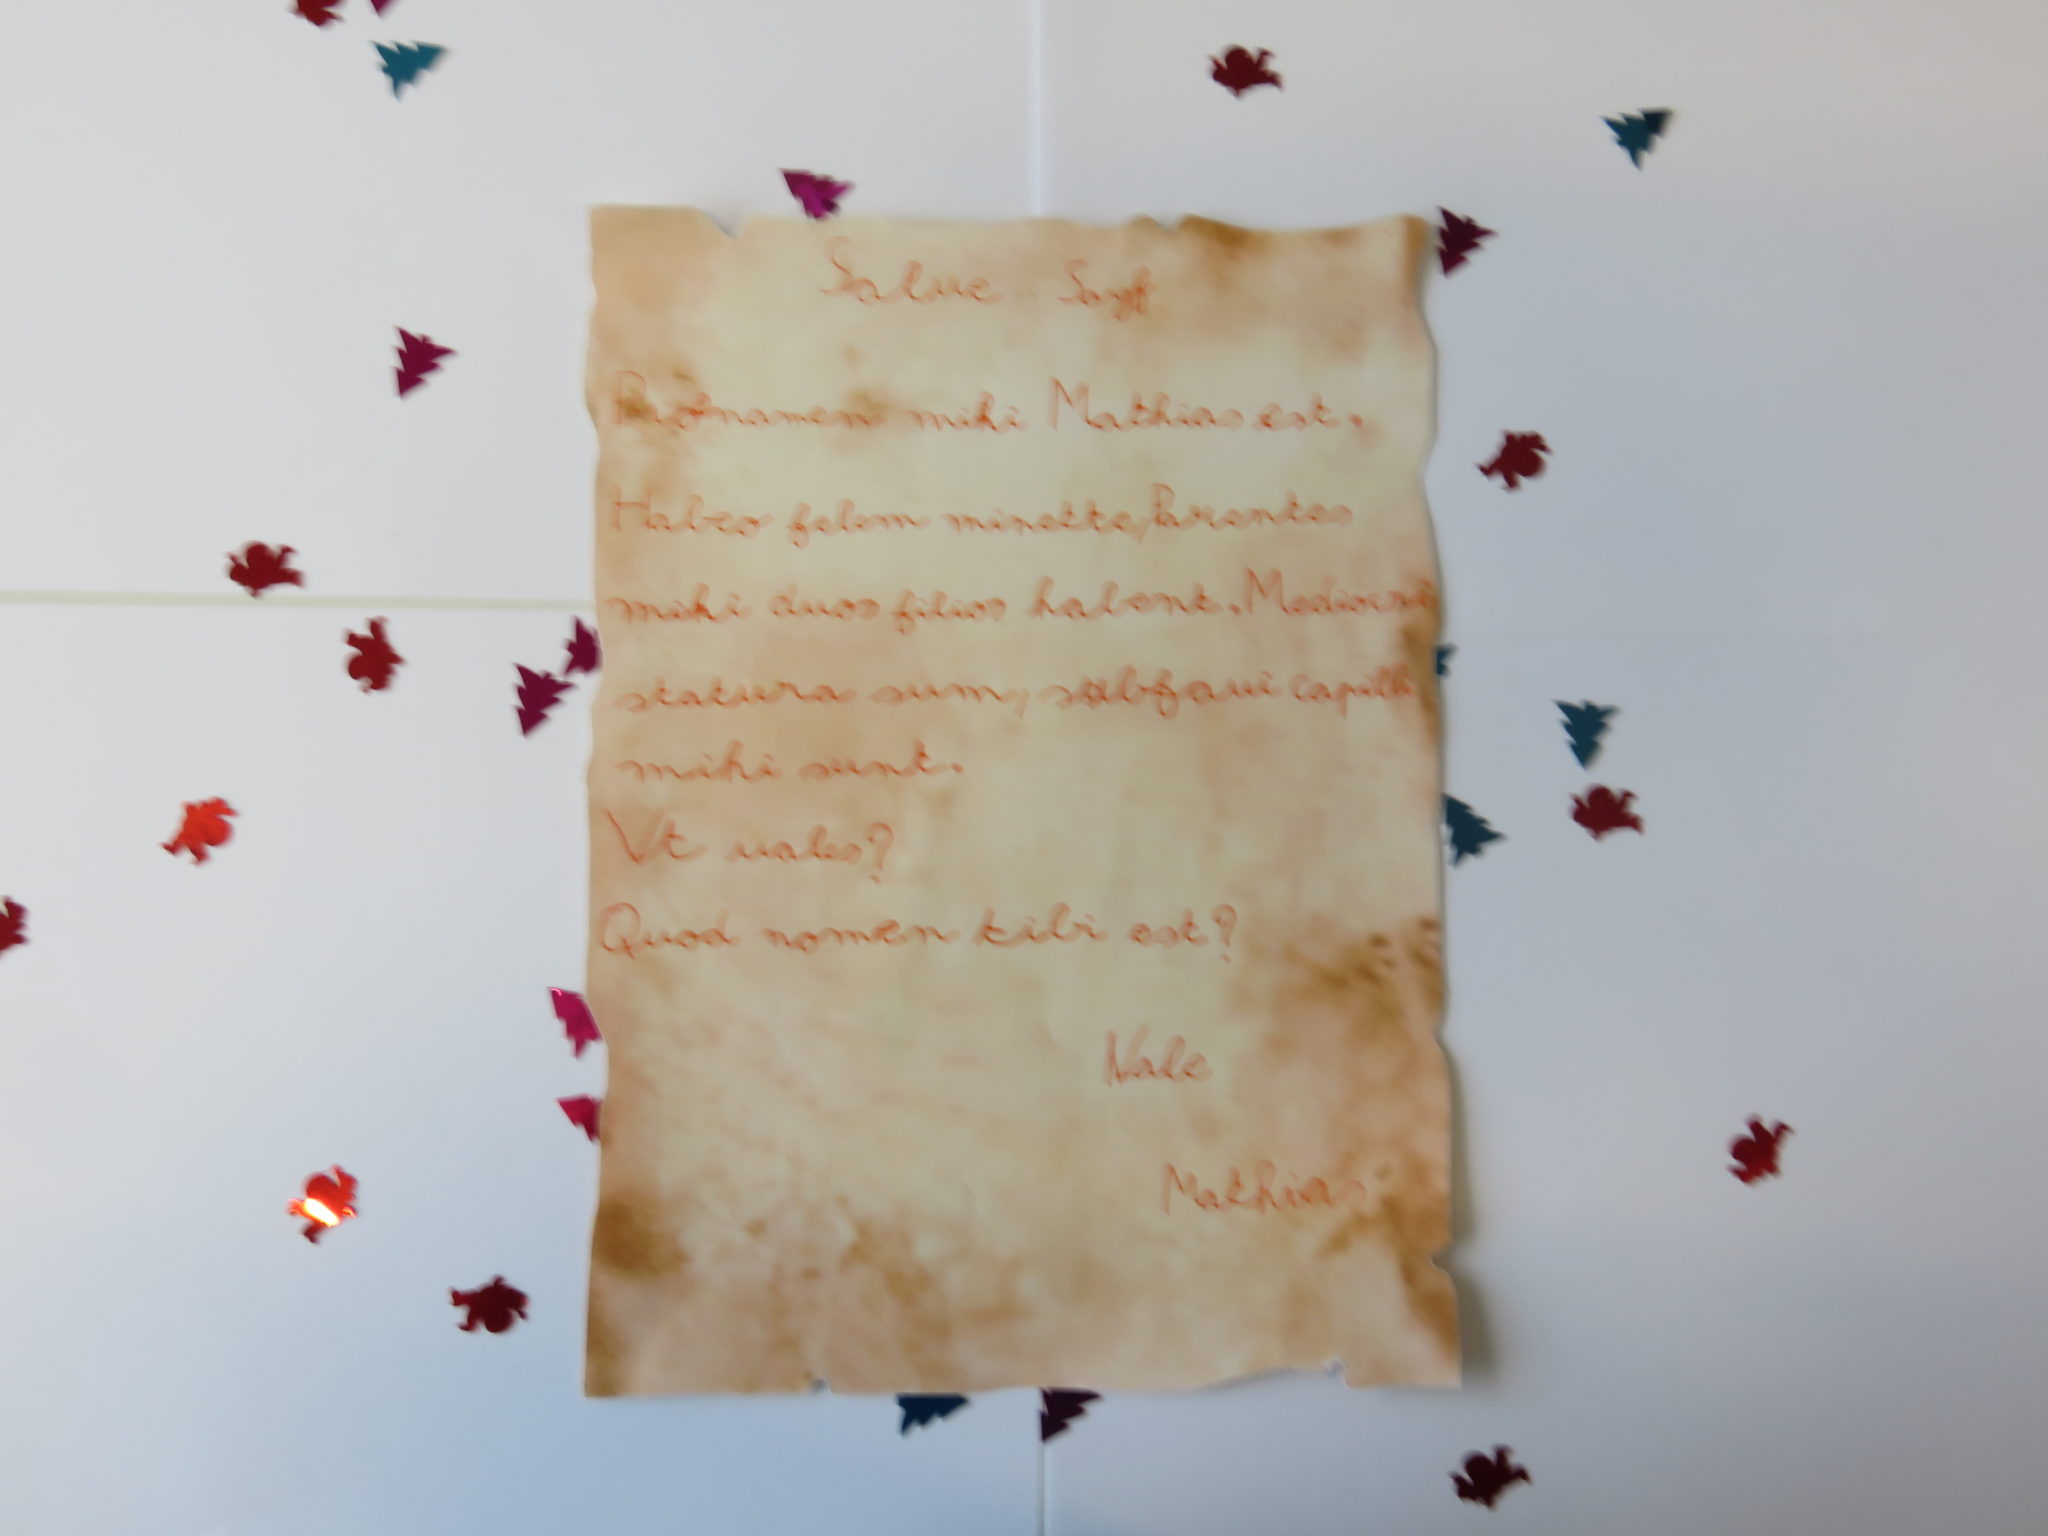 Salue
mihi Mathias est.
Habeo felem minette, Parentes
mihi duos filios habent. Mediocri
statura sum, subflaui capilli
mihi sunt.
Vt uales?
Quod nomen tibi est?
Vale
Mathias